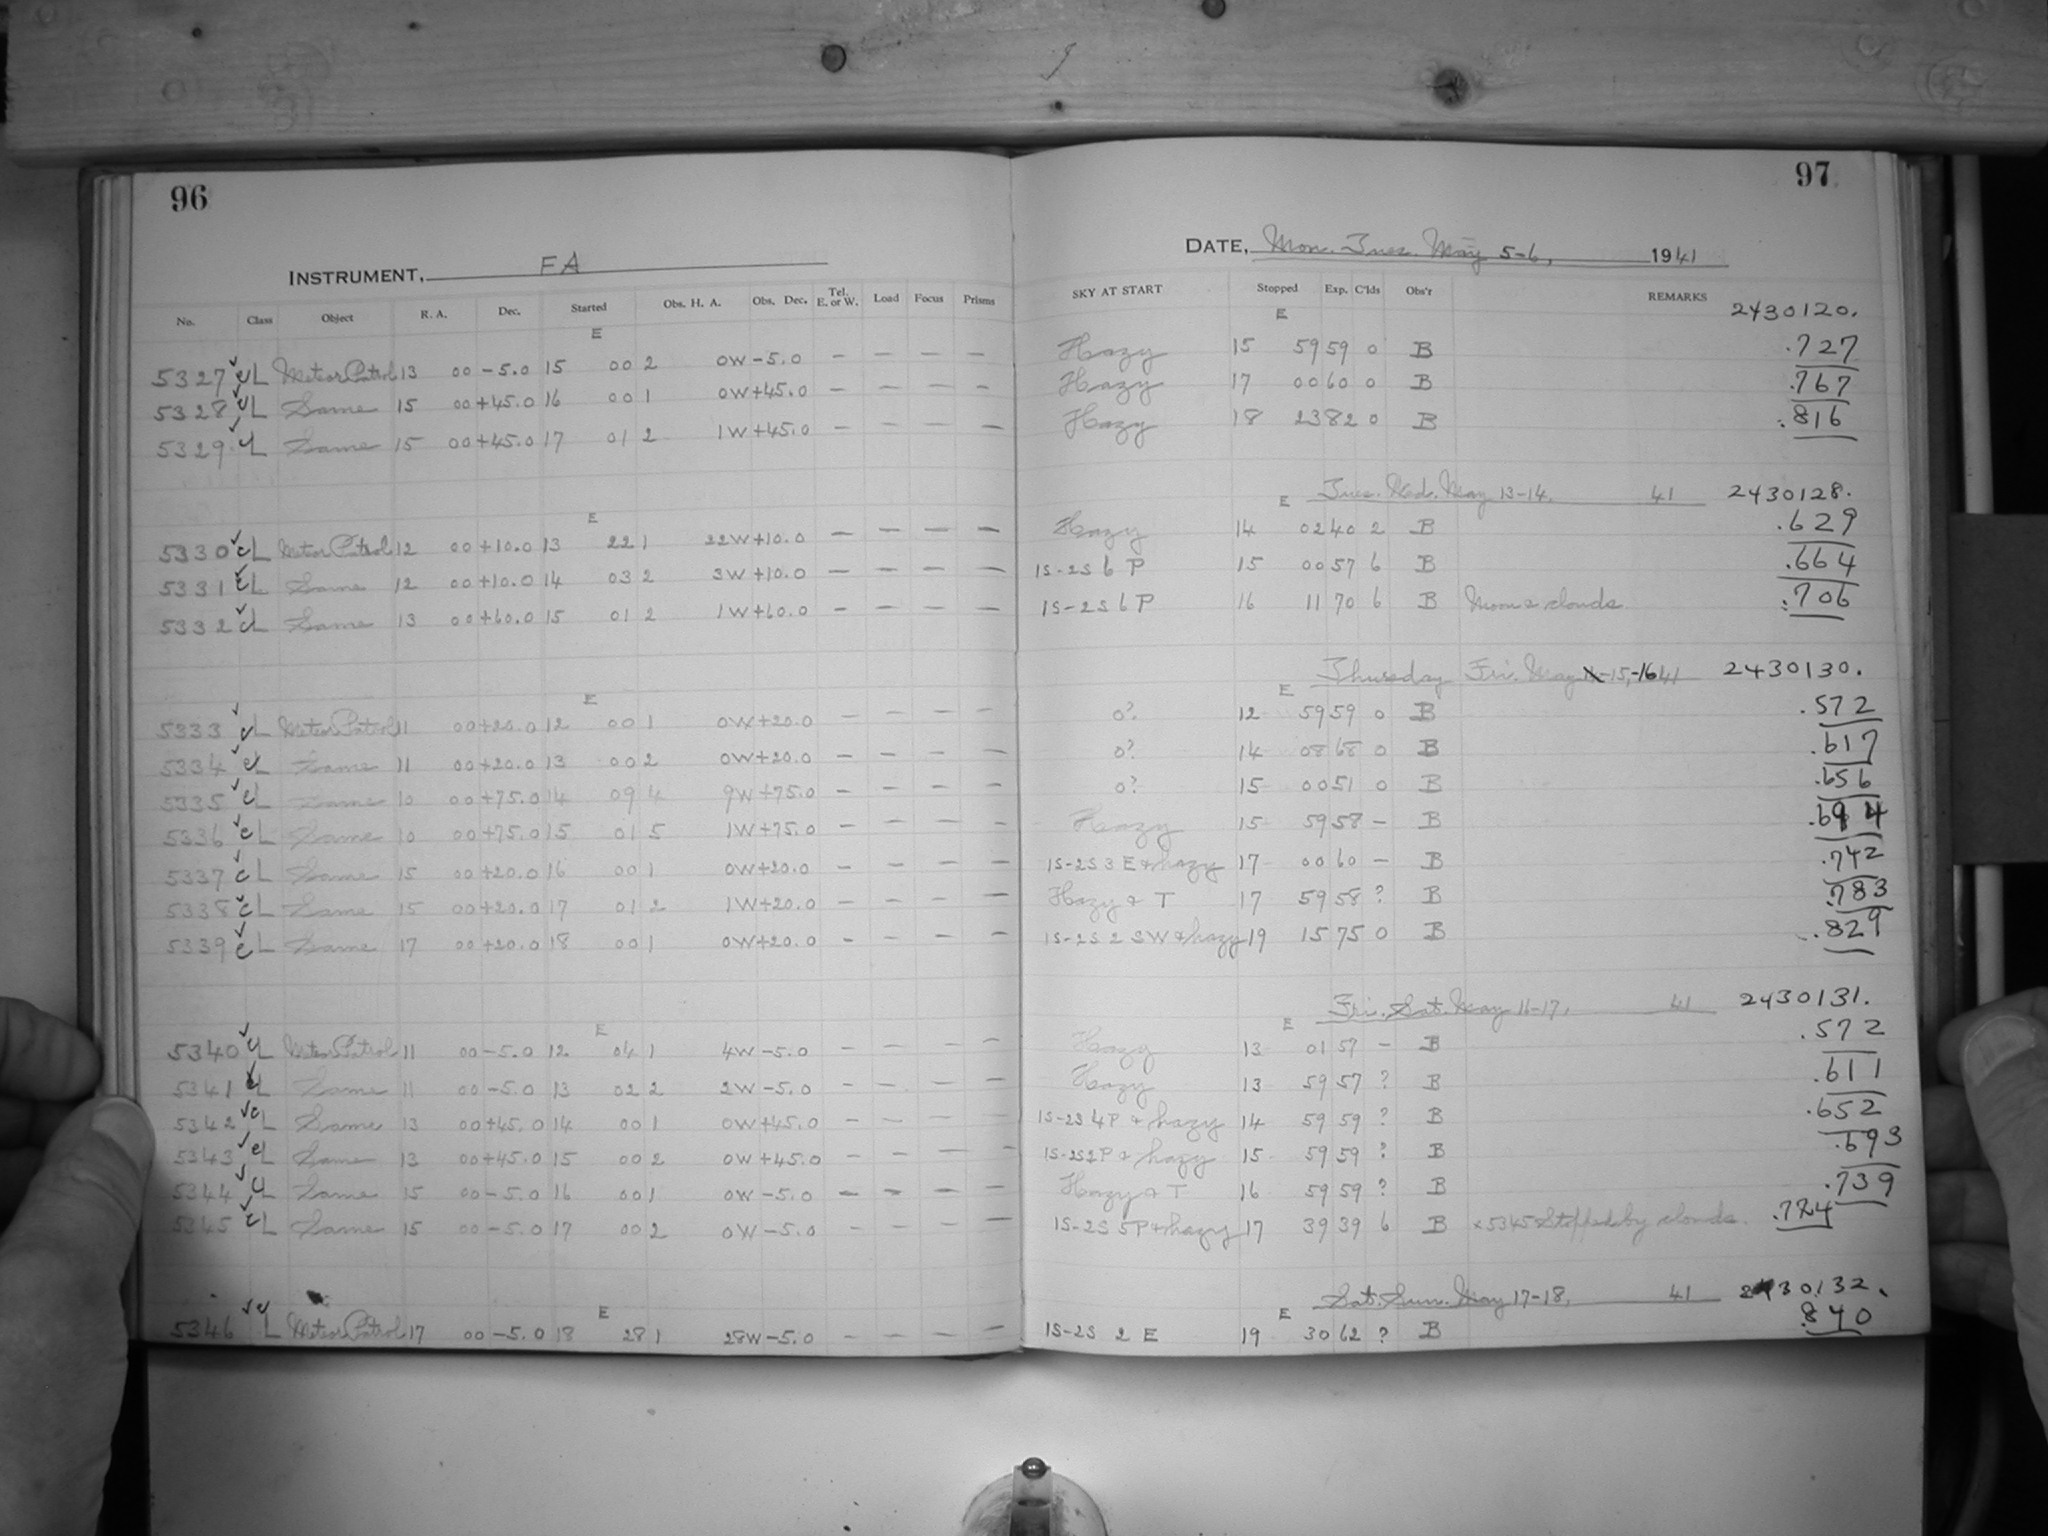 96
INSTRUMENT, FA
No. Class Object R. A. Dec. Started Obs. H. A. Obs. Dec. Tel. E. or W. Load Focus Prisms
E
5327 cL Meteor Patrol 13 00 -5.0 15 00 2 0W -5.0 — — — —
5328 cL Same 15 00 +45.0 16 00 1 0W +45.0 — — — —
5329 cL Same 15 00 +45.0 17 01 2 1W +45.0 — — — —
E
5330 cL Meteor Patrol 12 00 +10.0 13 22 1 22W +10.0 — — — —
5331 cL Same 12 00 +10.0 14 03 2 3W +10.0 — — — —
5332 cL Same 13 00 +60.0 15 01 2 1W +60.0 — — — —
E
5333 cL Meteor Patrol 11 00 +20.0 12 00 1 0W +20.0 — — — —
5334 cL Same 11 00 +20.0 13 00 2 0W +20.0 — — — —
5335 cL Same 10 00 +75.0 14 09 4 9W +75.0 — — — —
5336 cL Same 10 00 +75.0 15 01 5 1W +75.0 — — — —
5337 cL Same 15 00 +20.0 16 00 1 0W +20.0 — — — —
5338 cL Same 15 00 +20.0 17 01 2 1W +20.0 — — — —
5339 cL Same 17 00 +20.0 18 00 1 0W +20.0 — — — —
E
5340 cL Meteor Patrol 11 00 -5.0 12 04 1 4W -5.0 — — — —
5341 cL Same 11 00 -5.0 13 02 2 2W -5.0 — — — —
5342 cL Same 13 00 +45.0 14 00 1 0W +45.0 — — — —
5343 cL Same 13 00 +45.0 15 00 2 0W +45.0 — — — —
5344 cL Same 15 00 -5.0 16 00 1 0W -5.0 — — — —
5345 cL Same 15 00 -5.0 17 00 2 0W -5.0 — — — —
E
5346 cL Meteor Patrol 17 00 -5.0 18 28 1 28W -5.0 — — — —
97
DATE, Mon. Tues. May 5-6, 1941
SKY AT START Stopped Exp. C'lds Obs'r REMARKS 2430120.
E
Hazy 15 59 59 0 B .727
Hazy 17 00 60 0 B .767
Hazy 18 23 82 0 B .816
E Tues. Wed. May 13-14, 41 2430128.
Hazy 14 02 40 2 B .629
1S-2S 6 P 15 00 57 6 B .664
1S-2S 6 P 16 11 70 6 B Moon & clouds. .706
E Thursday Fri. May 15,-16 41 2430130.
0? 12 59 59 0 B .572
0? 14 08 68 0 B .617
0? 15 00 51 0 B .656
Hazy 15 59 58 — B .694
1S-2S 3 E & hazy 17 00 60 — B .742
Hazy & T 17 59 58 ? B .783
1S-2S 2 SW & hazy 19 15 75 0 B .829
E Fri. Sat. May 16-17, 41 2430131.
Hazy 13 01 57 — B .572
Hazy 13 59 57 ? B .611
1S-2S 4P & hazy 14 59 59 ? B .652
1S-2S 2P & hazy 15 59 59 ? B .693
Hazy & T 16 59 59 ? B .739
1S-2S 5P & hazy 17 39 39 6 B x 5345 Stopped by clouds. .774
E Sat. Sun. May 17-18, 41 2430132.
1S-2S 2 E 19 30 62 ? B .840